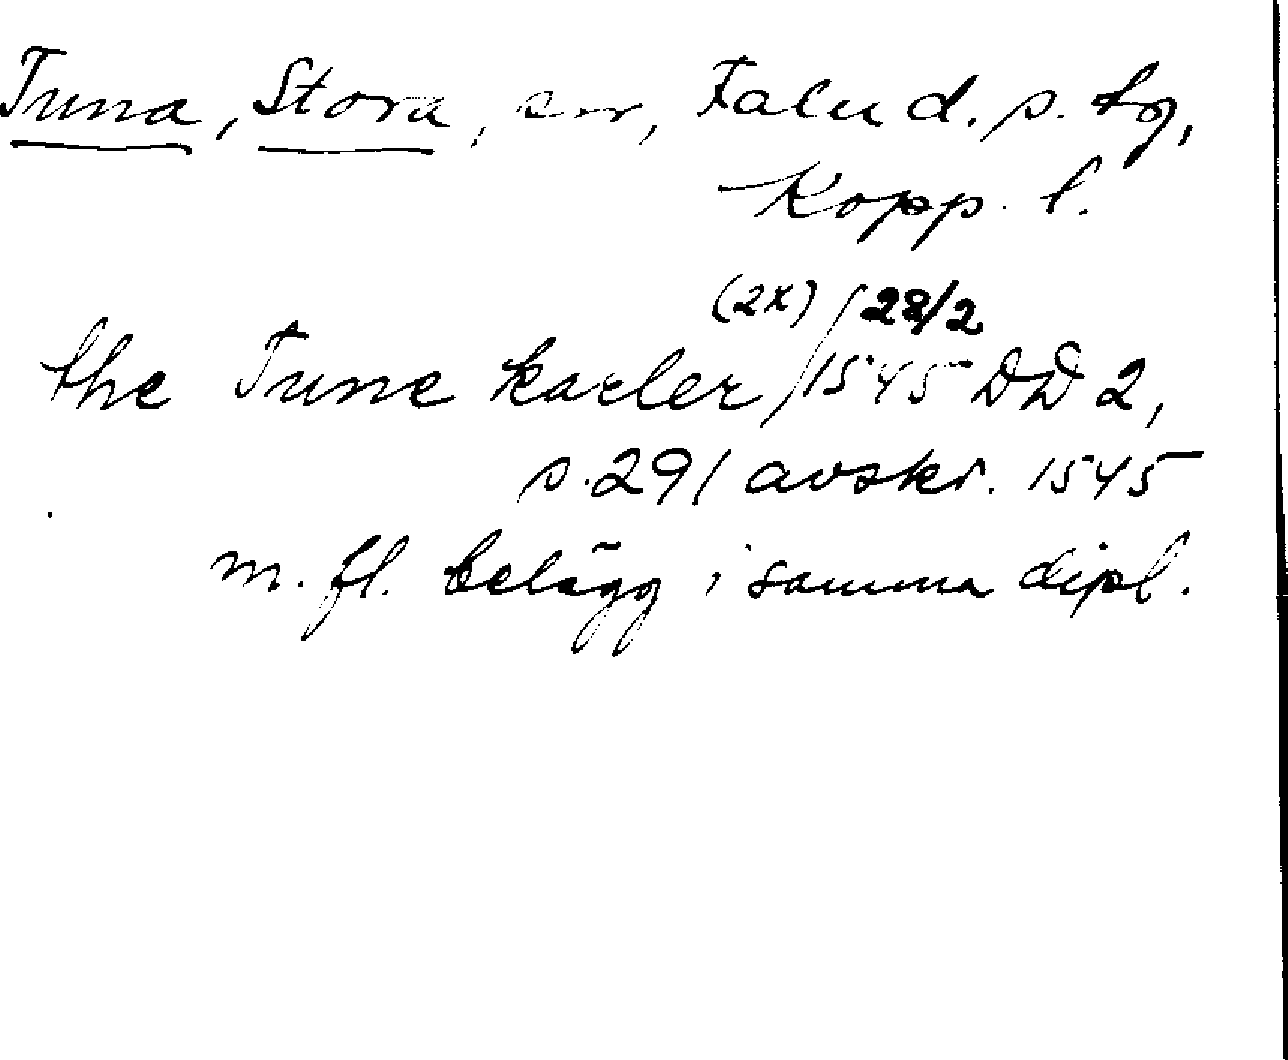 Tuna, Stora, sn, Falu d. s. tg,
Kopp. l.
(2x) 28/2
the Tune karler / 1545 DD 2,
s. 291 avskr. 1545
m. fl. belägg i samma dipl.